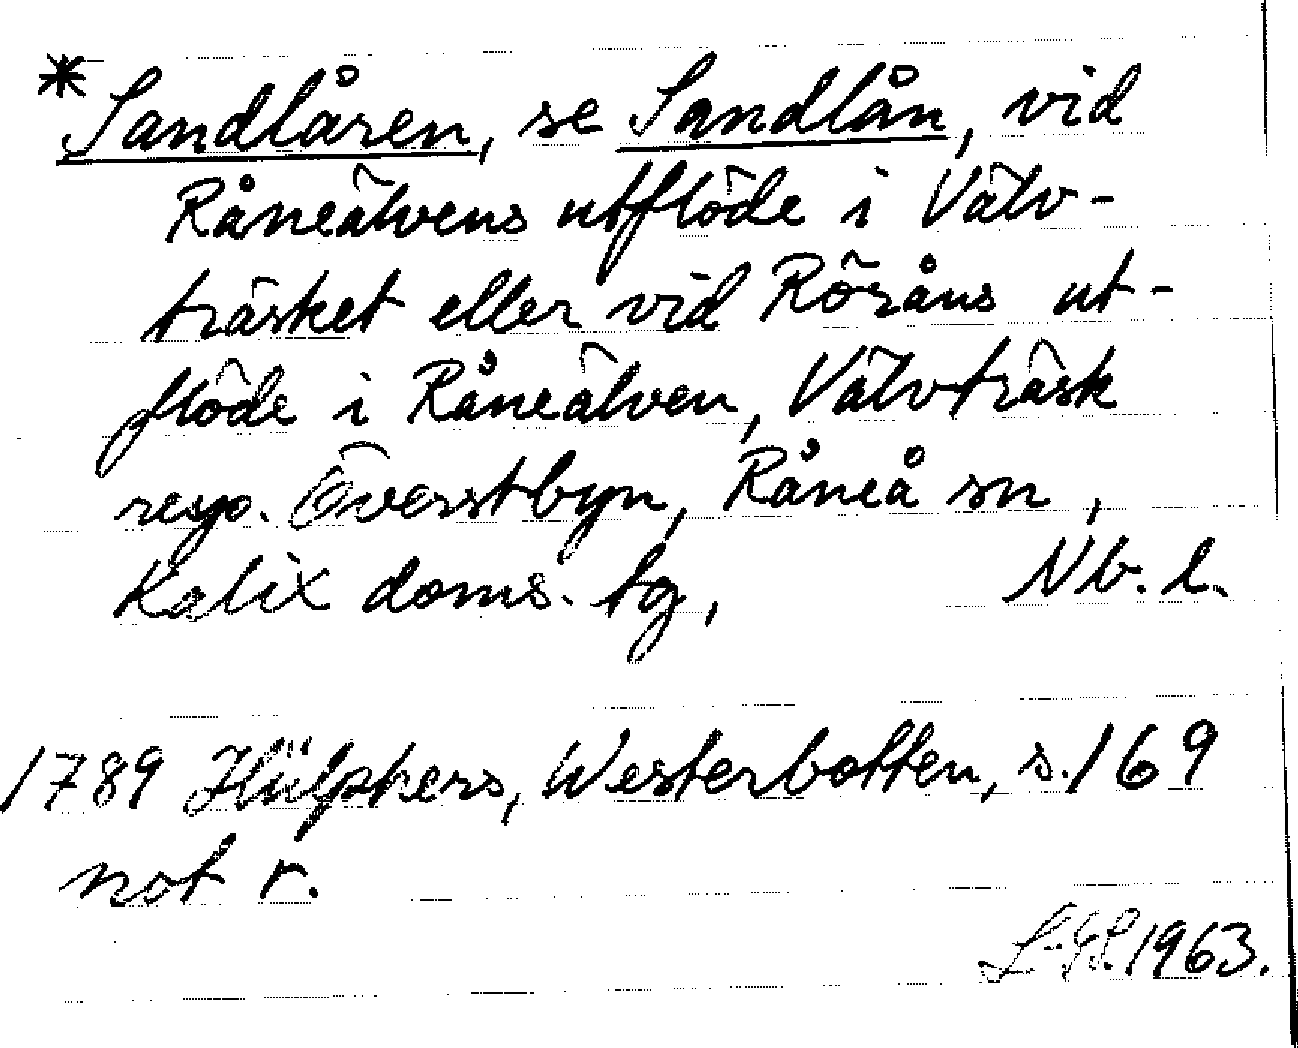 * Sandlåren, se Sandlån, vid
Råneälvens utflöde i Välv-
träsket eller vid Röråns ut-
flöde i Råneälven, Välvträsk
resp. Överstbyn, Råneå sn,
Kalix doms. tg, Nb. l.
1789 Hülphers, Westerbotten, s. 169
not r.
1963.